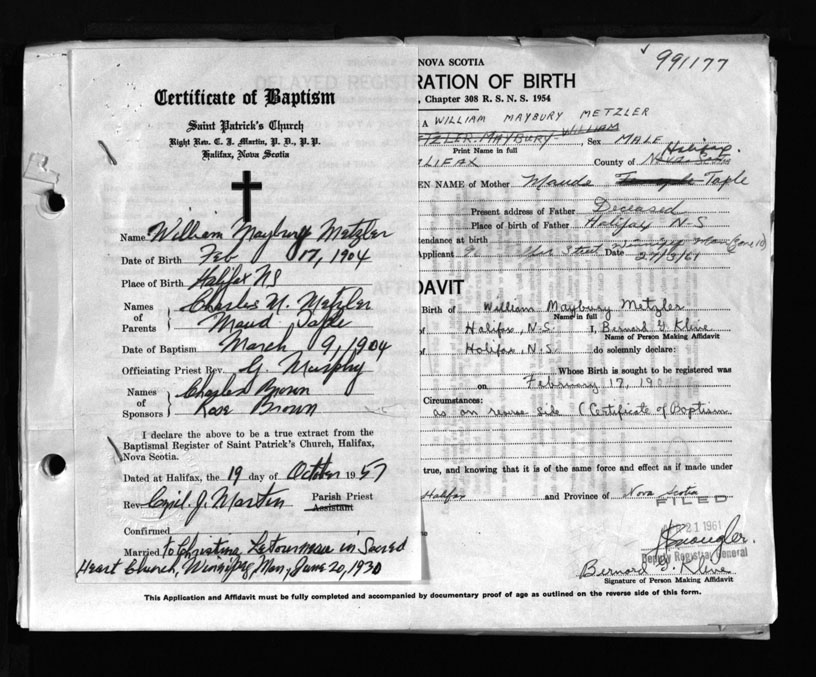 Certificate of Baptism
Saint Patrick's Church
Right Rev. C. J. Martin, P. D., P. P.
Halifax, Nova Scotia
Name William Maybury Metzler
Date of Birth Feb 17, 1904
Place of Birth Halifax NS
Names of Parents } Charles N. Metzler
Maud Taple
Date of Baptism March 9, 1904
Officiating Priest Rev. G. Murphy
Names of Sponsors } Charles Brown
Rose Brown
I declare the above to be a true extract from the
Baptismal Register of Saint Patrick's Church, Halifax,
Nova Scotia.
Dated at Halifax, the 19 day of October 1957
Rev. Cyril J. Martin Parish Priest
Assistant
Confirmed
Married to Christina Letourneau in Sacred
Heart Church, Winnipeg, Man, June 20, 1930
991177
NOVA SCOTIA
RATION OF BIRTH
, Chapter 308 R. S. N. S. 1954
A WILLIAM MAYBURY METZLER
ETZLER MAYBURY WILLIAM, Sex MALE
Print Name in full
Halifax
LIFAX County of Nova Scotia
EN NAME of Mother Maude Taple
Present address of Father Deceased
Place of birth of Father Halifax N-S
tendance at birth
Applicant Street Date 27/3/61
DAVIT
Birth of William Maybury Metzler
Name in full
of Halifax, N.S. I, Bernard G. Kline
Name of Person Making Affidavit
of Halifax, N.S. do solemnly declare:
Whose Birth is sought to be registered was
on February 17, 190
Circumstances:
as on reverse side (Certificate of Baptism
true, and knowing that it is of the same force and effect as if made under
Halifax and Province of Nova Scotia
FILED
21 1961
Deputy Registrar General
Bernard G. Kline
Signature of Person Making Affidavit
This Application and Affidavit must be fully completed and accompanied by documentary proof of age as outlined on the reverse side of this form.